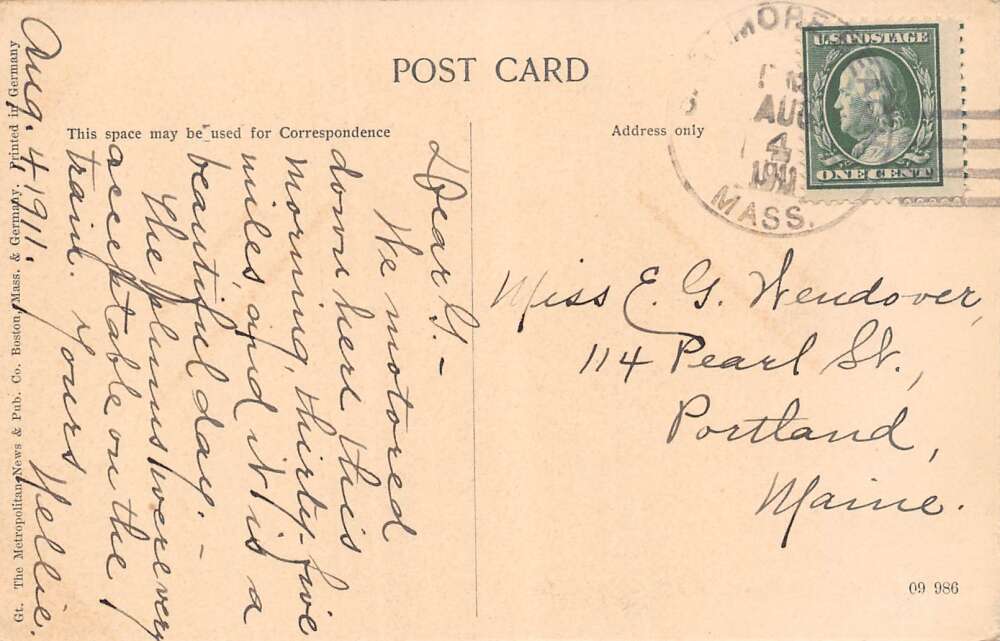 POST CARD
This space may be used for Correspondence
Address only
U.S. POSTAGE
ONE CENT
AUG
4
1911
MASS.
Dear G. -
We motored
down here this
morning, thirty-five
miles, and it is a
beautiful day. -
The plums were very
acceptable on the
train. Yours Nellie.
Aug. 4 1911.
Miss E. G. Wendover,
114 Pearl St.,
Portland,
Maine.
Gt. The Metropolitan News & Pub. Co. Boston, Mass. & Germany. Printed in Germany
09 986